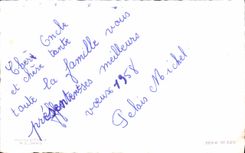 Chers Oncle
et chère tante
toute la famille vous
présente ses meilleurs
voeux 1958
Palais Michel